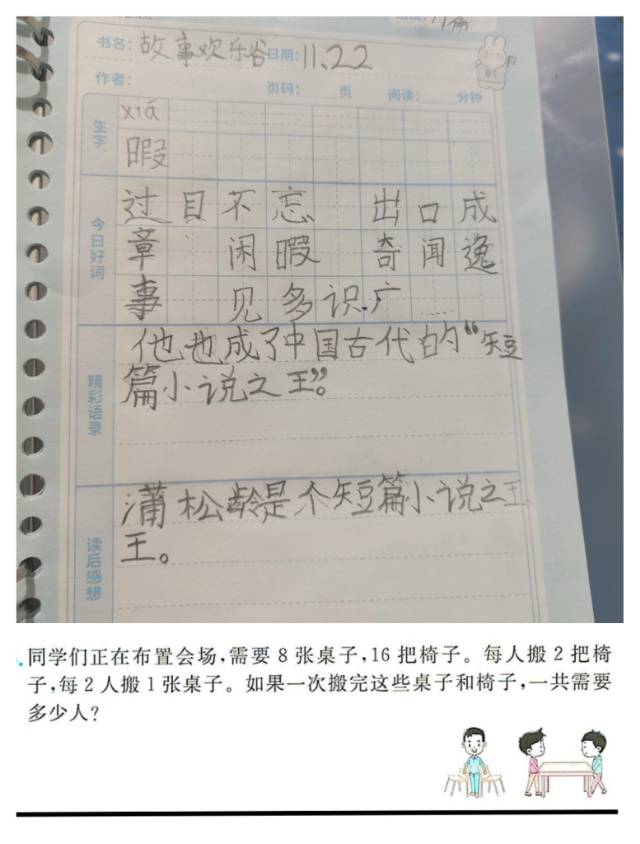 书名：故事欢乐谷 日期：11.22
作者： 页码： 页 阅读： 分钟
生字
xiá
暇
今日好词
过目不忘 出口成
章 闲暇 奇闻逸
事 见多识广
精彩语录
他也成了中国古代的“短
篇小说之王”。
读后感想
蒲松龄是个短篇小说之王
王。
同学们正在布置会场，需要 8 张桌子，16 把椅子。每人搬 2 把椅
子，每 2 人搬 1 张桌子。如果一次搬完这些桌子和椅子，一共需要
多少人？